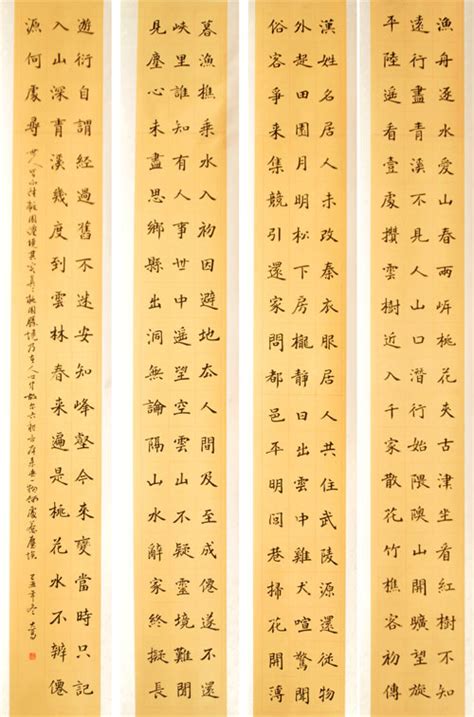 漁舟逐水愛山春兩岸桃花夾古津坐看紅樹不知
遠行盡青溪不見人山口潛行始隈隩山開曠望旋
平陸遥看壹處攢雲樹近入千家散花竹樵客初傳
漢姓名居人未改秦衣服居人共住武陵源還從物
外起田園月明松下房櫳靜日出雲中雞犬喧驚聞
俗客爭來集競引還家問都邑平明閭巷掃花開薄
暮漁樵乘水入初因避地去人間及至成僊遂不還
峽里誰知有人事世中遥望空雲山不疑靈境難聞
見塵心未盡思鄉縣出洞無論隔山水辭家終擬長
遊衍自謂經過舊不迷安知峰壑今來變當時只記
入山深青溪幾度到雲林春來遍是桃花水不辨僊
源何處尋
己丑年冬